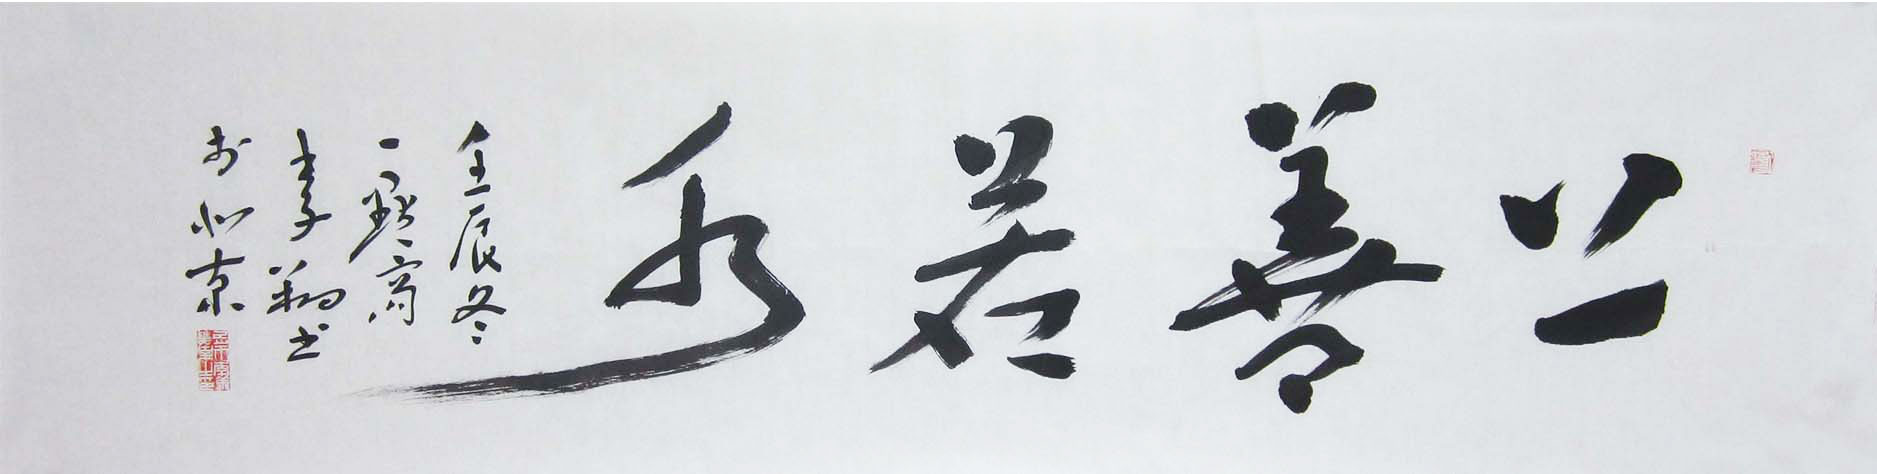 上善若水
壬辰冬
一点斋
李翔书
于北京